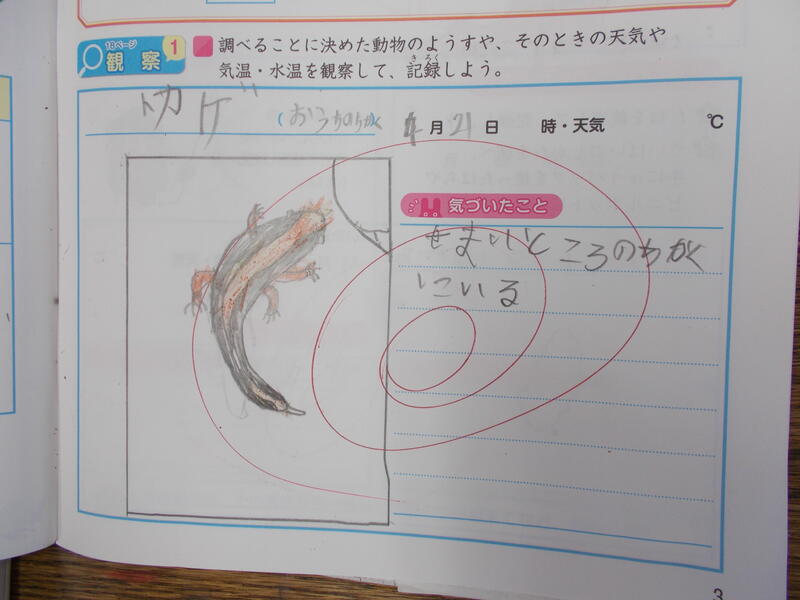 18ページ
観察 1 調べることに決めた動物のようすや、そのときの天気や
気温・水温を観察して、記録しよう。
きろく
トカゲ (おうちのちかく 4月21日 時・天気 ℃
気づいたこと
せまいところのちかく
にいる
3